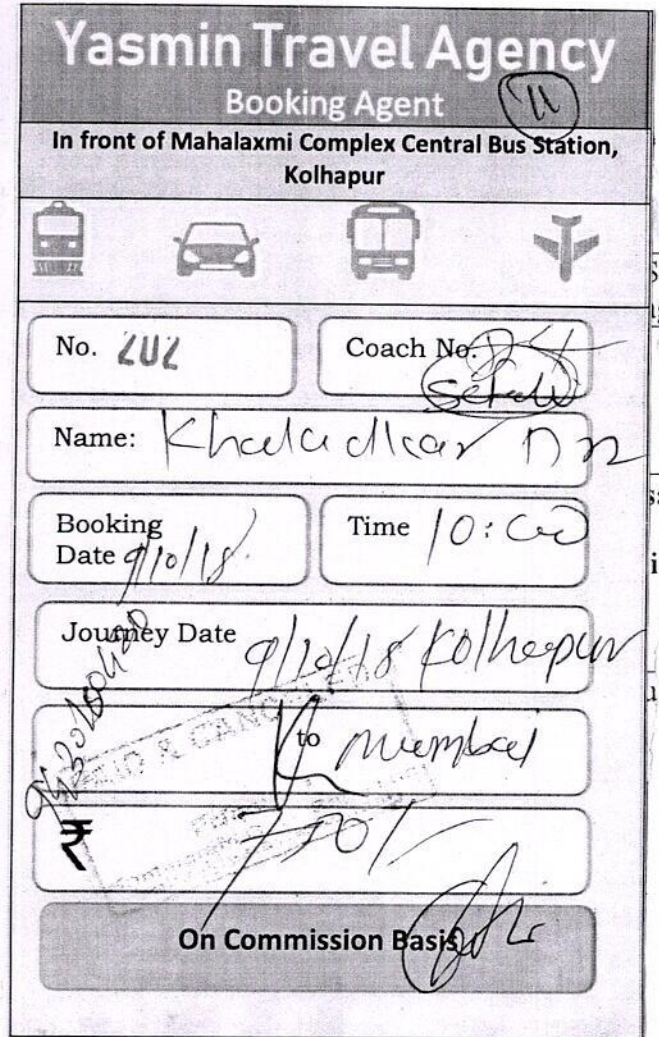 Yasmin Travel Agency
Booking Agent
11
In front of Mahalaxmi Complex Central Bus Station,
Kolhapur
No. 202
Coach No.
Name: Khaladkar
Booking
Date 9/10/18
Time 10:00
Journey Date 9/10/18 Kolhapur
to mumbai
PAID & CANCELLED
₹
On Commission Basis